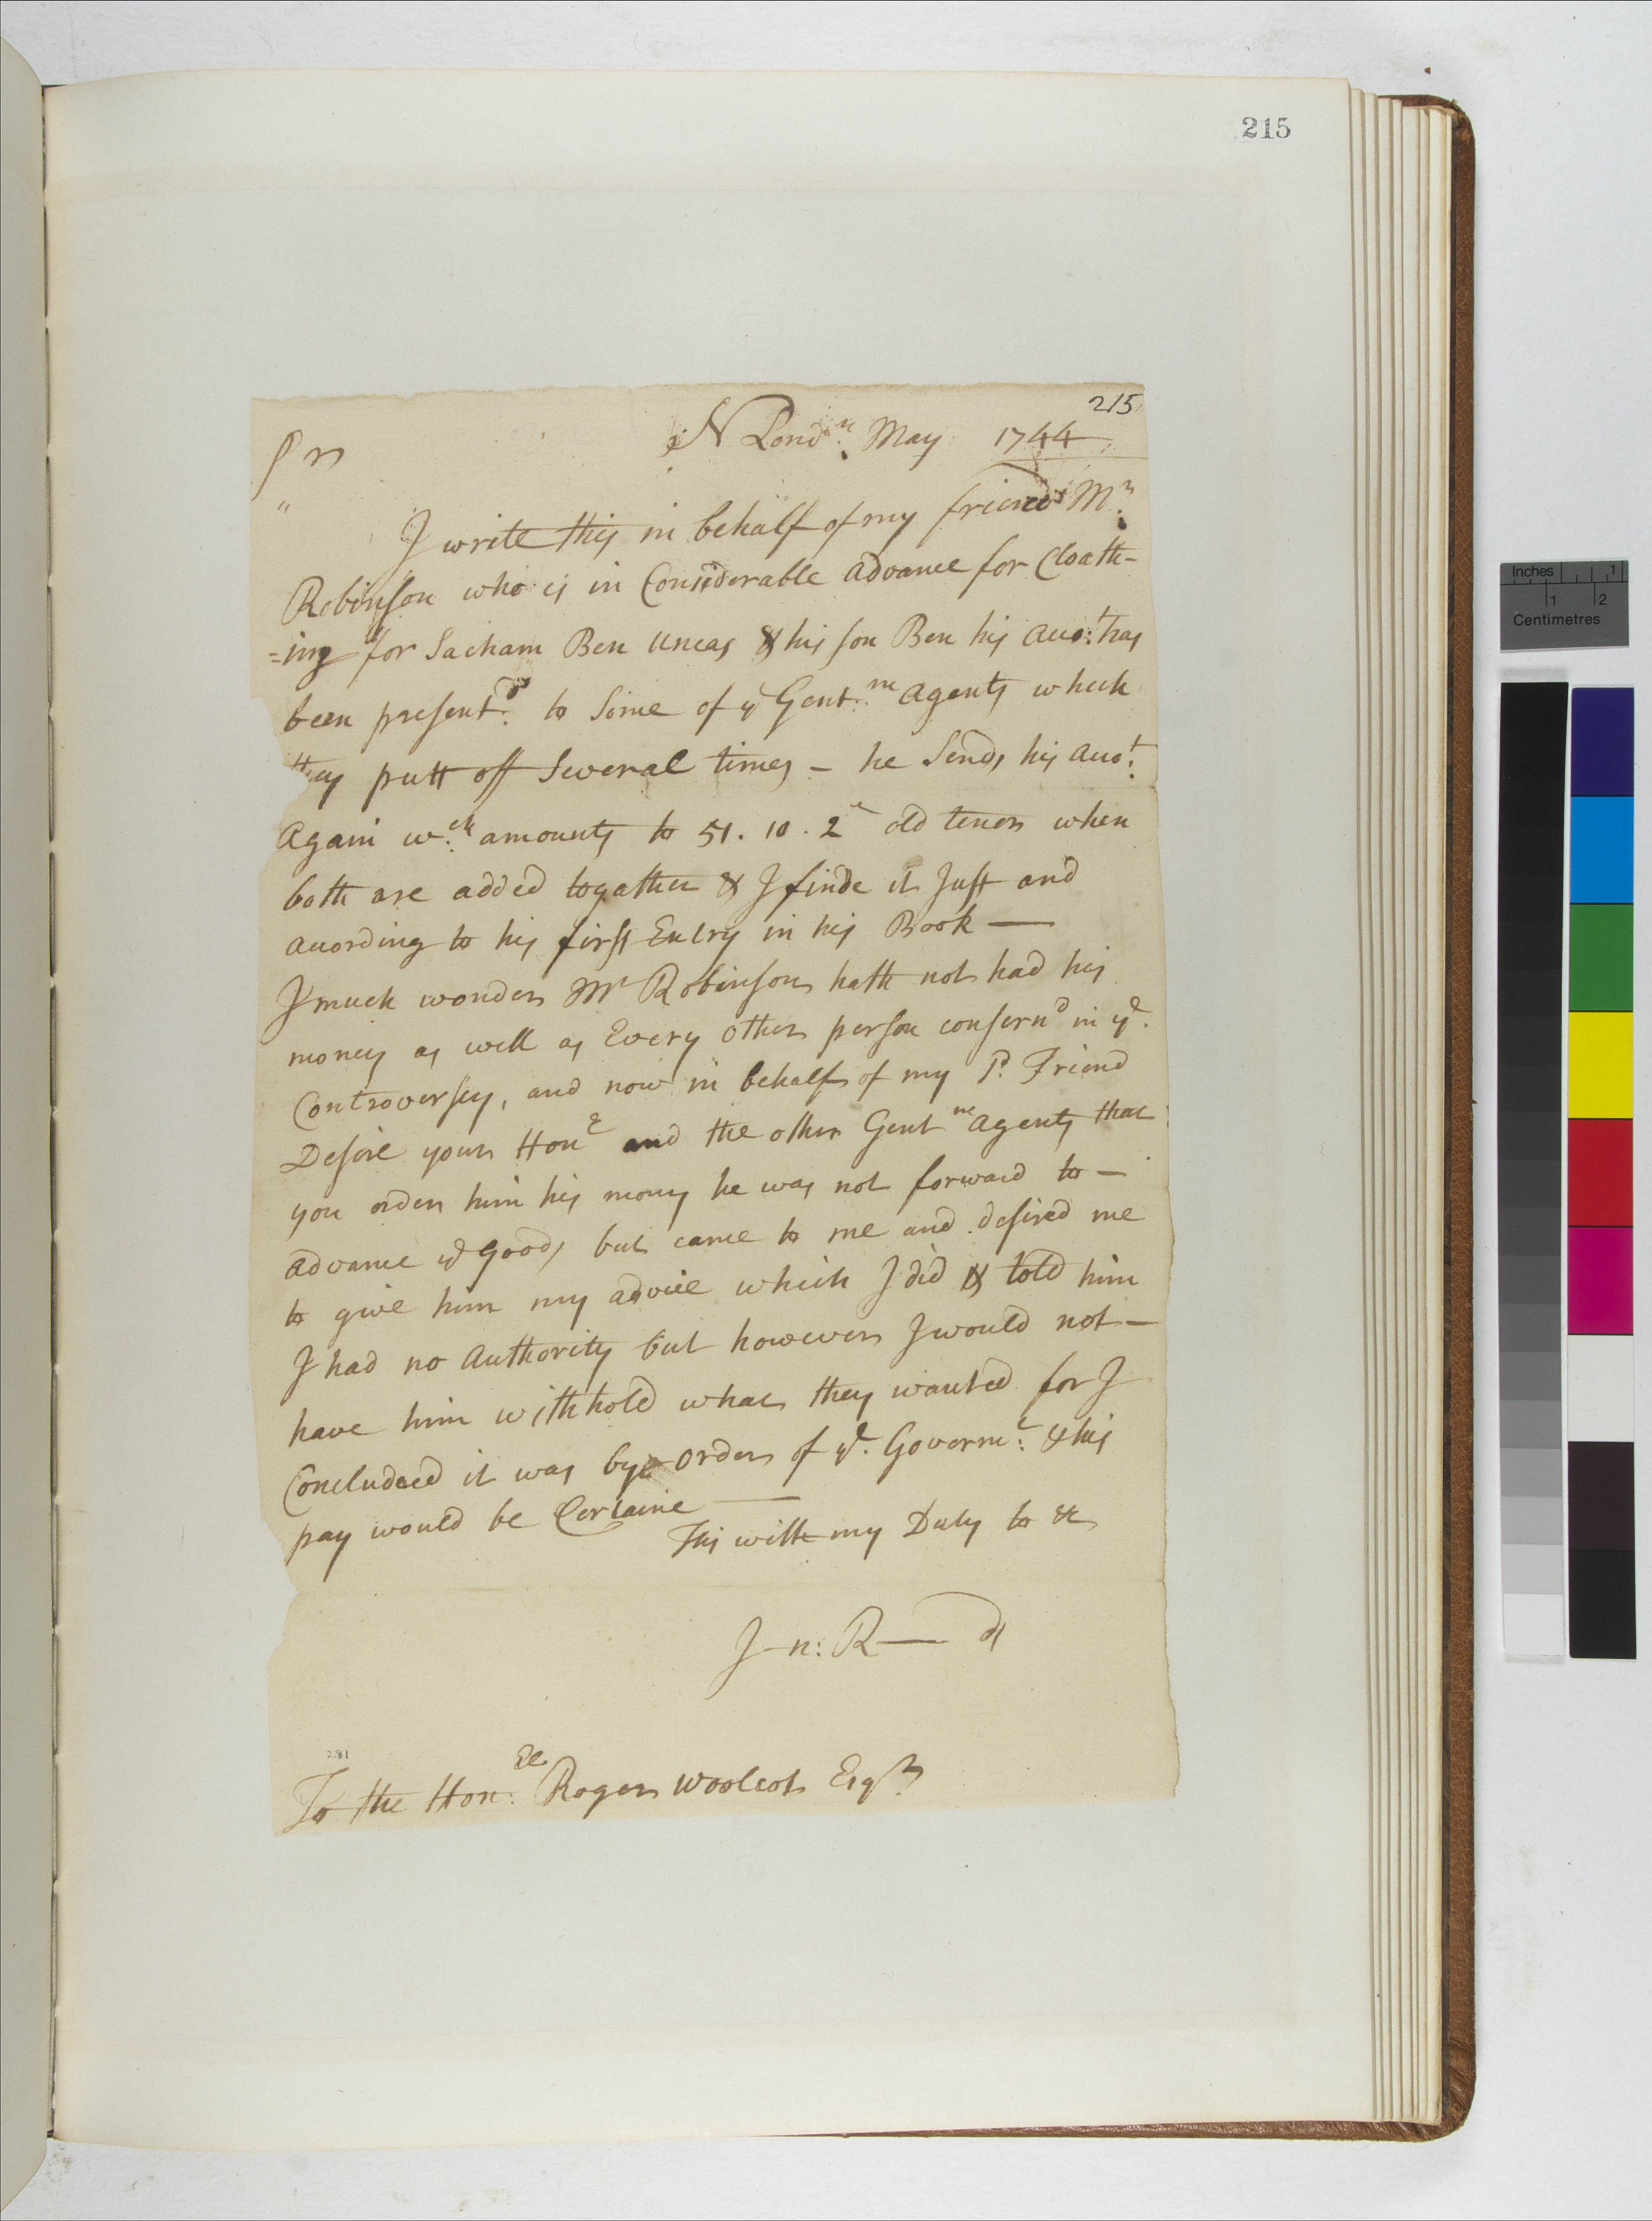 215
215
N Lond:n May 1744
Sr
I write this in behalf of my friend Mr
Robinson who is in Considerable advance for Cloath-
=ing for Sacham Ben Uncas & his son Ben his Acco:t has
been present:d to Some of ye Gent:me agents which
they putt off Several times - he Sends his Acco:t
Again w:ch amounts to 51. 10. 2 old tenor when
both are added togather & I finde it Just and
according to his first Entry in his Book —
I much wonder Mr Robinson hath not had his
money as well as Every other person consernd in ye
Controversey, and now in behalf of my sd Friend
Desire your Hone and the other Gentme agents that
you order him his mony he was not forward to -
advance ye goods but came to me and desired me
to give him my advice which I did & told him
I had no Authority but however I would not -
have him withhold what they wanted for I
Concludeed it was by order of ye Governm:t & his
pay would be Certaine —
This with my Duty to &c
J-n: R— d
281
To the Hon:ble Roger Woolcot Esqr
Inches 1
1 2
Centimetres